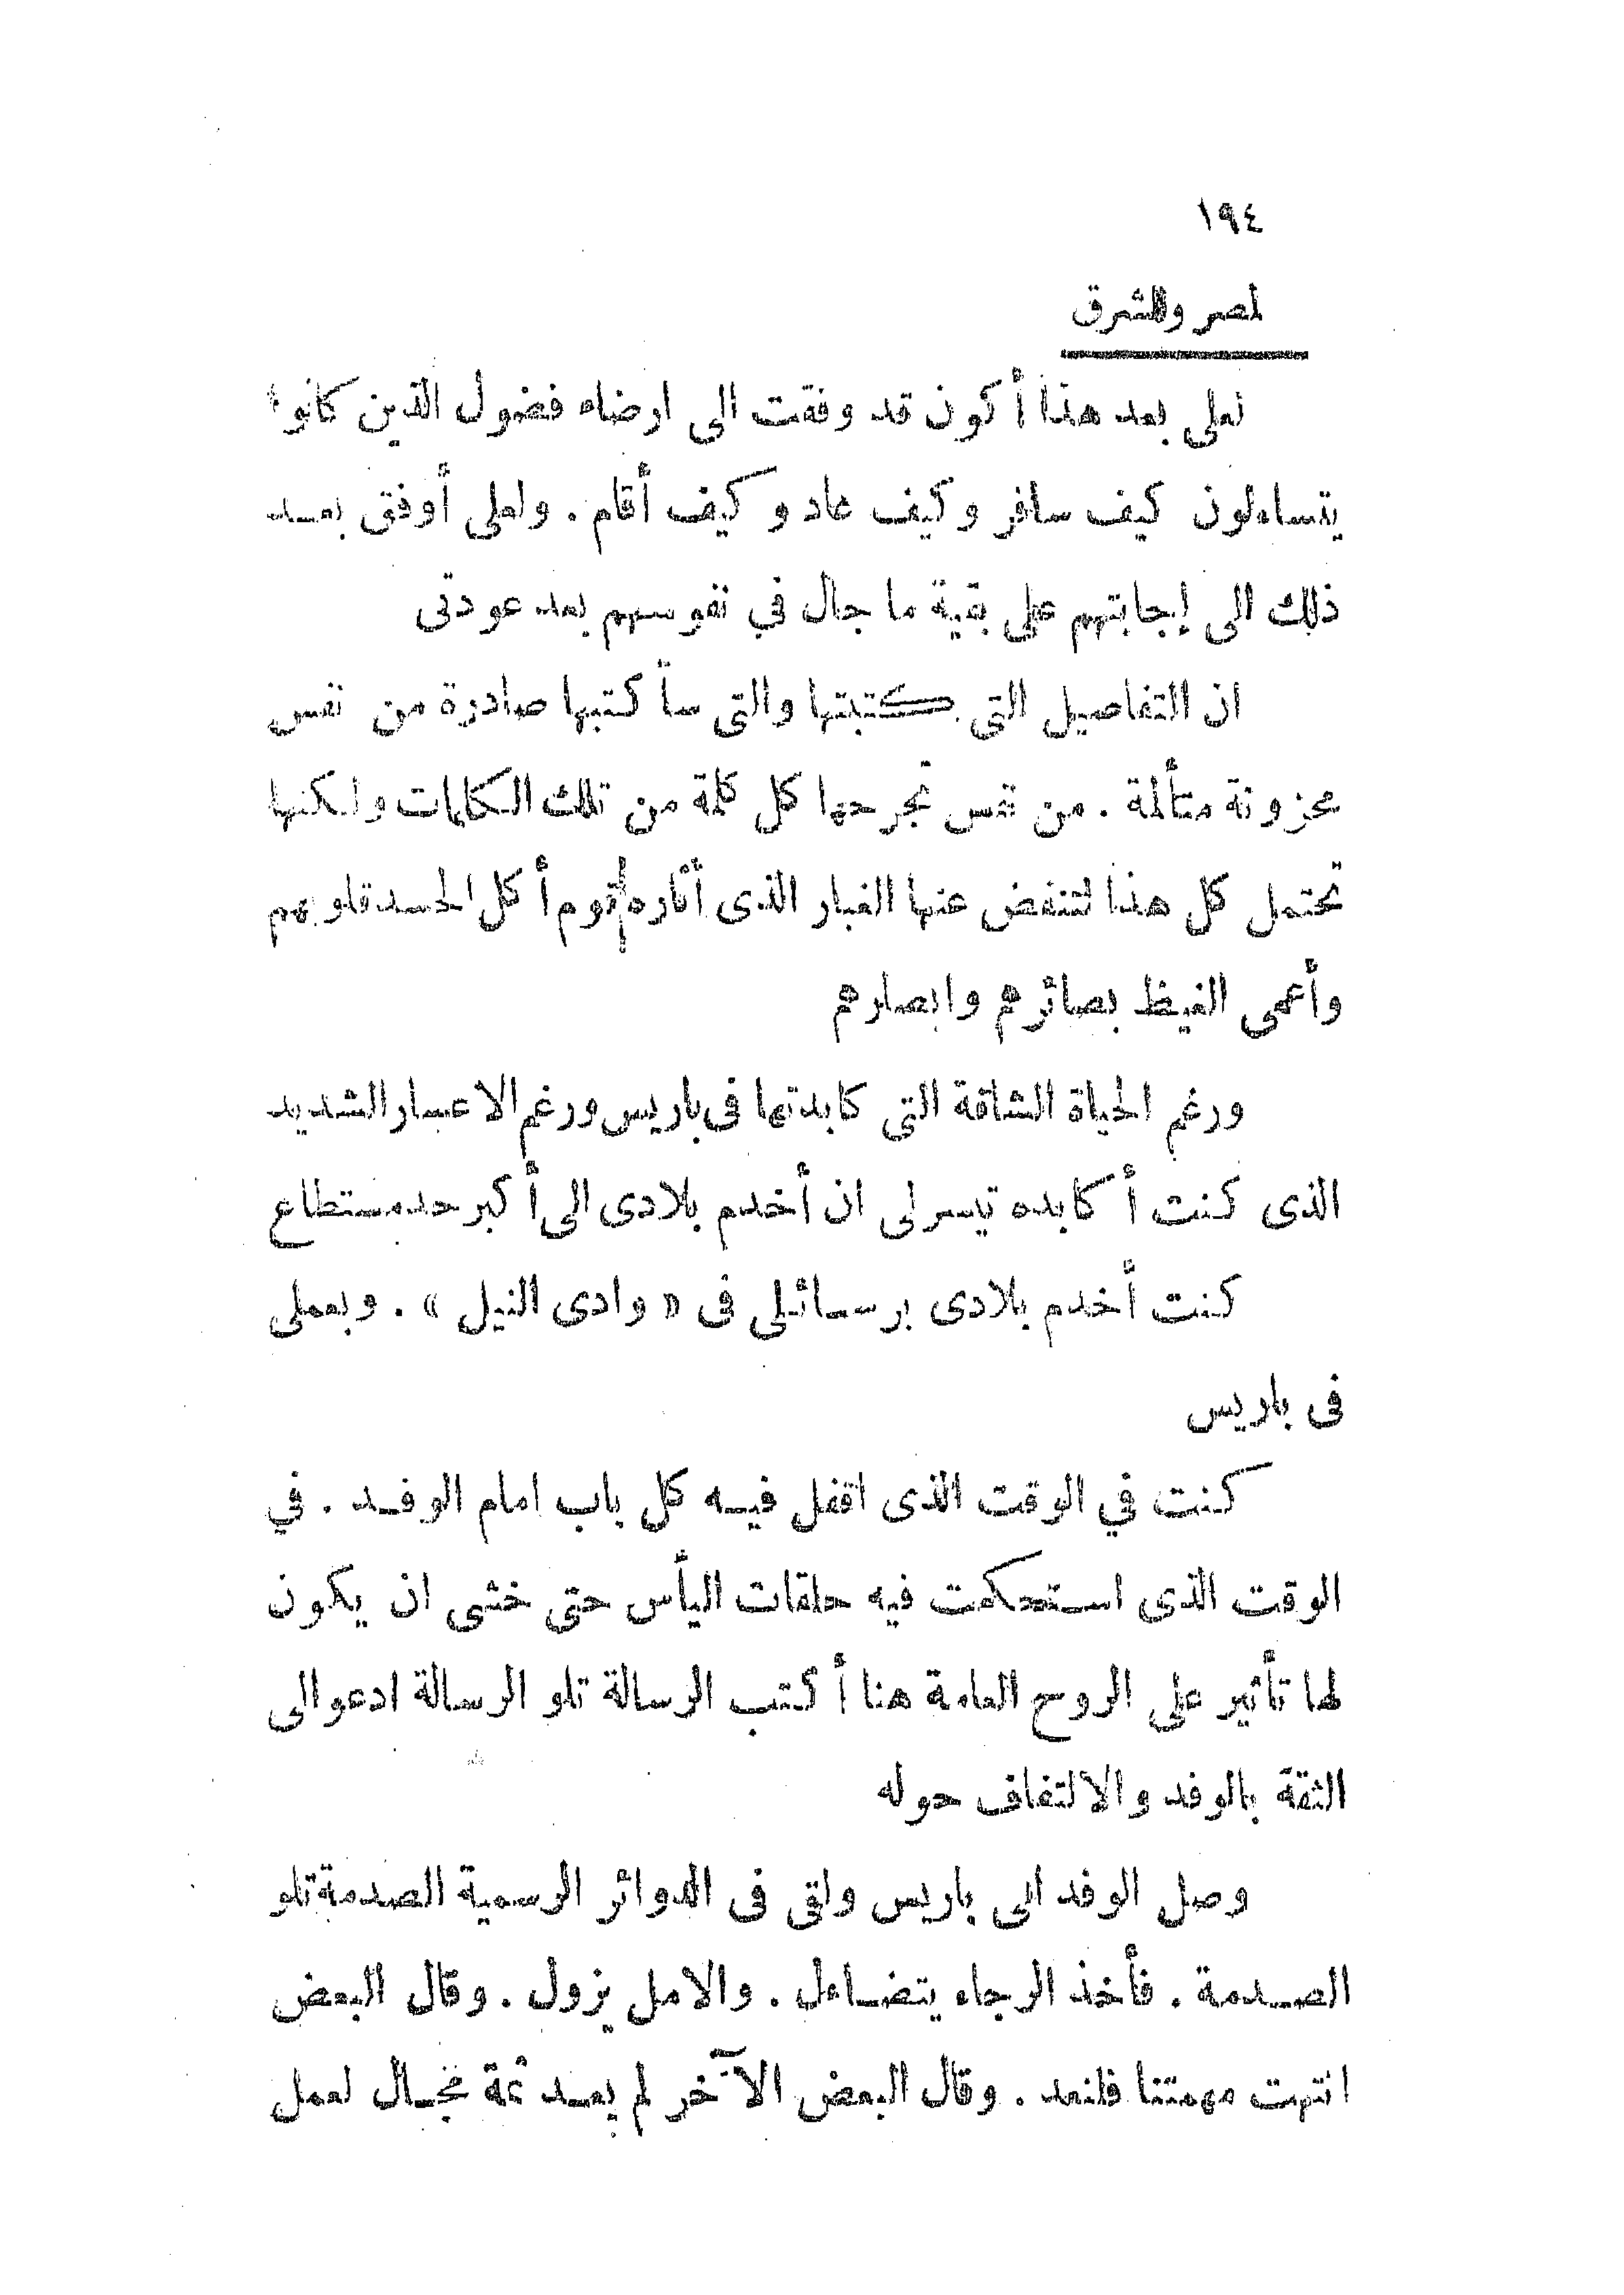 ١٩٤
لمصر وللشرق
لعلى بعد هذا أكون قد وفقت الى ارضاء فضول الذين كانوا
يتساءلون كيف سافر وكيف عاد وكيف أقام . ولعلى أوفق بعد
ذلك الى إجابتهم على بقية ما جال في نفوسهم بعد عودتى
ان التفاصيل التى كتبتها والتى سأكتبها صادرة من نفس
محزونة متألمة . من نفس تجرحها كل كلمة من تلك الكلمات ولكنها
تحتمل كل هذا لتنفض عنها الغبار الذى أثاره قوم أكل الحسد قلوبهم
وأعمى الغيظ بصائرهم وابصارهم
ورغم الحياة الشاقة التى كابدتها فى باريس ورغم الاعسار الشديد
الذى كنت أكابده تيسر لى ان أخدم بلادى الى أكبر حد مستطاع
كنت أخدم بلادى برسائلى فى « وادى النيل » . وبعملى
فى باريس
كنت في الوقت الذى اقفل فيه كل باب امام الوفد . في
الوقت الذى استحكمت فيه حلقات اليأس حتى خشى ان يكون
لها تأثير على الروح العامة هنا أكتب الرسالة تلو الرسالة ادعو الى
الثقة بالوفد والالتفاف حوله
وصل الوفد الى باريس ولقى فى الدوائر الرسمية الصدمة تلو
الصدمة . فأخذ الرجاء يتضاءل . والامل يزول . وقال البعض
انتهت مهمتنا فلنعد . وقال البعض الآخر لم يعد ثمة مجال لعمل